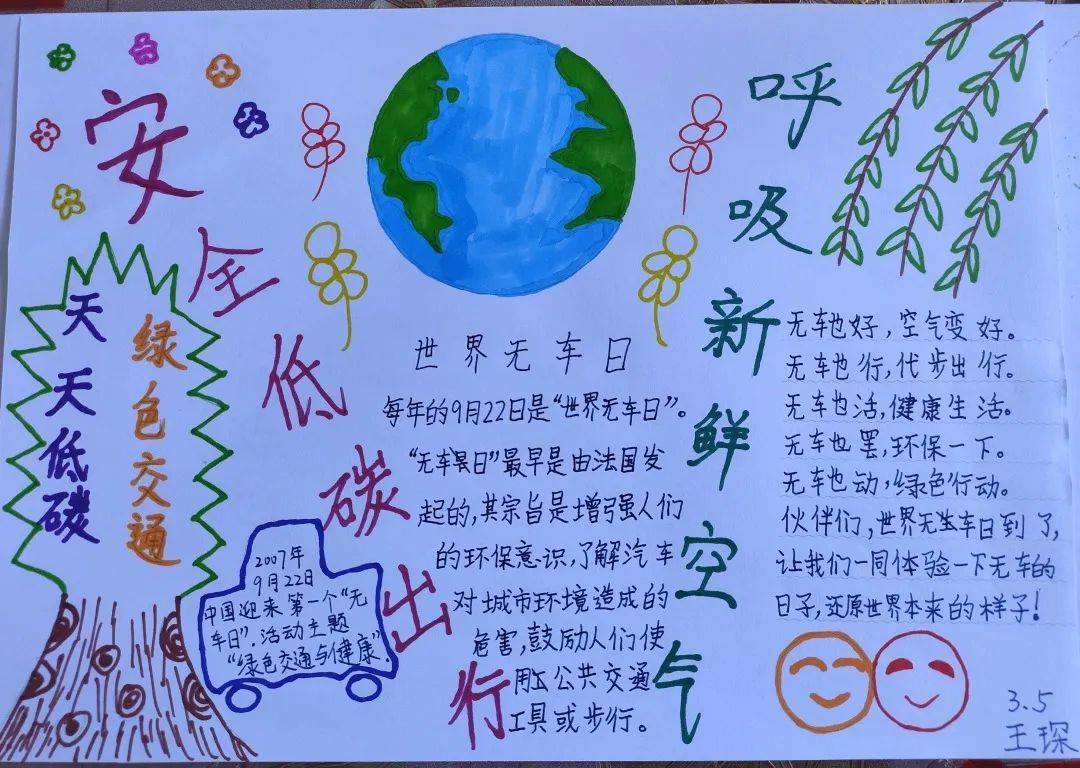 安全低碳出行
呼吸新鲜空气
天天低碳
绿色交通
世界无车日
每年的9月22日是“世界无车日”。
“无车日”最早是由法国发
起的,其宗旨是增强人们
的环保意识,了解汽车
对城市环境造成的
危害,鼓励人们使
用公共交通
工具或步行。
2007年
9月22日
中国迎来第一个“无
车日”.活动主题
“绿色交通与健康”.
无车也好,空气变好。
无车也行,代步出行。
无车也活,健康生活。
无车也罢,环保一下。
无车也动,绿色行动。
伙伴们,世界无生车日到了,
让我们一同体验一下无车的
日子,还原世界本来的样子!
3.5
王琛